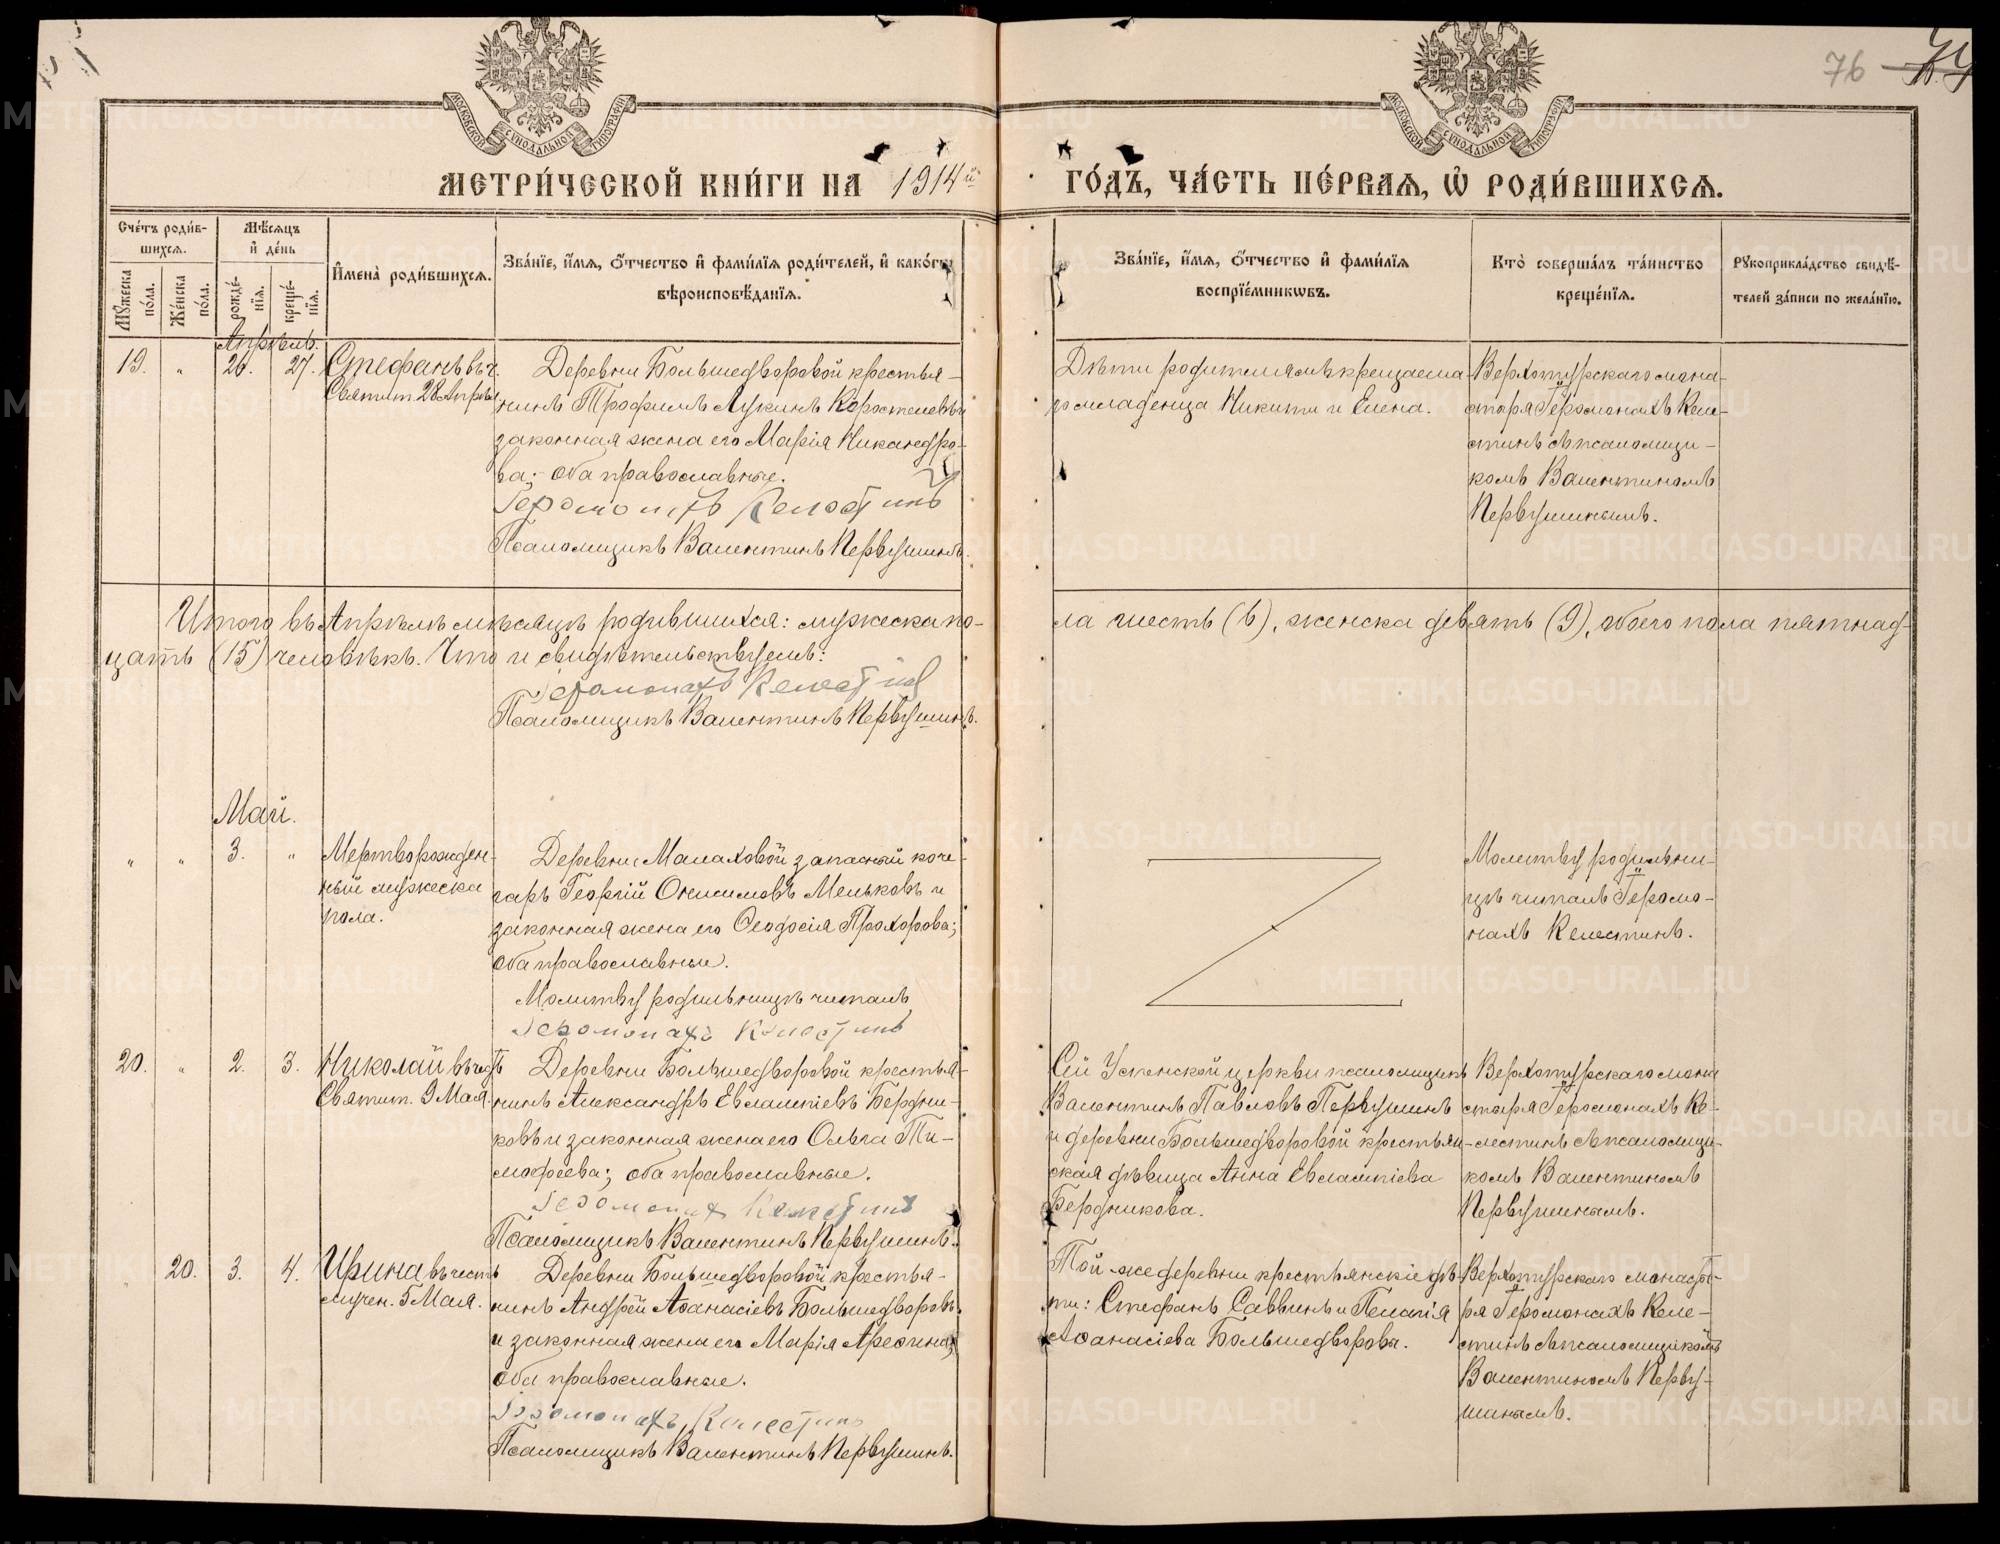 76
МОСКОВСКОЙ СУНОДАЛЬНОЙ ТИПОГРАФІИ
МОСКОВСКОЙ СУНОДАЛЬНОЙ ТИПОГРАФІИ
МЕТРИ́ЧЕСКОЙ КНИ́ГИ НА 1914й ГО́ДЪ, ЧА́СТЬ ПЕ́РВАѦ, Ѡ҆ РОДИ́ВШИХСѦ.
Сче́тъ роди́в-
шихсѧ.
Мꙋ́жеска по́ла.
Же́нска по́ла.
Мѣ́сѧцъ и҆ де́нь
рожде́-нїѧ.
креще́-нїѧ.
И҆мена̀ роди́вшихсѧ.
Зва́нїе, и҆́мѧ, ѻ҆́тчество и҆ фами́лїѧ роди́телей, и҆ како́гѡ
вѣроисповѣ́данїѧ.
Зва́нїе, и҆́мѧ, ѻ҆́тчество и҆ фами́лїѧ
воспрїе́мникѡвъ.
Кто̀ соверша́лъ та́инство
креще́нїѧ.
Рꙋкоприкла́дство свидѣ́-
телей за́писи по жела́нїю.
Апрѣль.
19. " 26. 27. Стефанъ въ ч.
Святит. 28 Апрѣля
Деревни Большедворовой крестья-
нинъ Трофимъ Лукинъ Коростелевъ и
законная жена его Марія Никандро-
ва; оба православные.
Іеромонахъ Келестинъ
Псаломщикъ Валентинъ Первушинъ.
Дѣти родителямъ крещаема-
го младенца Никита и Елена.
Верхотурскаго мона-
стыря Іеромонахъ Келе-
стинъ съ псаломщи-
комъ Валентиномъ
Первушинымъ.
Итого въ Апрѣлѣ мѣсяцѣ родившихся: мужеска по-
ла шесть (6), женска девять (9), обоего пола пятнад-
цать (15) человѣкъ. Что и свидѣтельствуемъ:
Іеромонахъ Келестинъ
Псаломщикъ Валентинъ Первушинъ.
Май.
" " 3. " Мертворожден-
ный мужеска
пола.
Деревни Малаховой запасный коче-
гаръ Георгій Онисимовъ Меньковъ и
законная жена его Ѳеодосія Прохорова;
оба православные.
Молитву родильницѣ читалъ
Іеромонахъ Келестинъ
Молитву родильни-
цѣ читалъ Іеромо-
нахъ Келестинъ.
20. " 2. 3. Николай въ честь
Святит. 9 Мая.
Деревни Большедворовой крестья-
нинъ Александръ Евлампіевъ Бердни-
ковъ и законная жена его Ольга Ти-
мофеева; оба православные.
Іеромонахъ Келестинъ
Псаломщикъ Валентинъ Первушинъ.
Сей Успенской церкви псаломщикъ
Валентинъ Павловъ Первушинъ
и деревни Большедворовой крестьян-
ская дѣвица Анна Евлампіева
Бердникова.
Верхотурскаго мона-
стыря Іеромонахъ Ке-
лестинъ съ псаломщи-
комъ Валентиномъ
Первушинымъ.
20. 3. 4. Ирина въ честь
мучен. 5 Мая.
Деревни Большедворовой крестья-
нинъ Андрей Аѳанасіевъ Большедворовъ
и законная жена его Марія Ареѳина;
оба православные.
Іеромонахъ Келестинъ
Псаломщикъ Валентинъ Первушинъ.
Той-же деревни крестьянскіе дѣ-
ти: Стефанъ Саввинъ и Пелагія
Аѳанасіева Большедворова.
Верхотурскаго монасты-
ря Іеромонахъ Келе-
стинъ съ псаломщикомъ
Валентиномъ Перву-
шинымъ.
METRIKI.GASO-URAL.RU